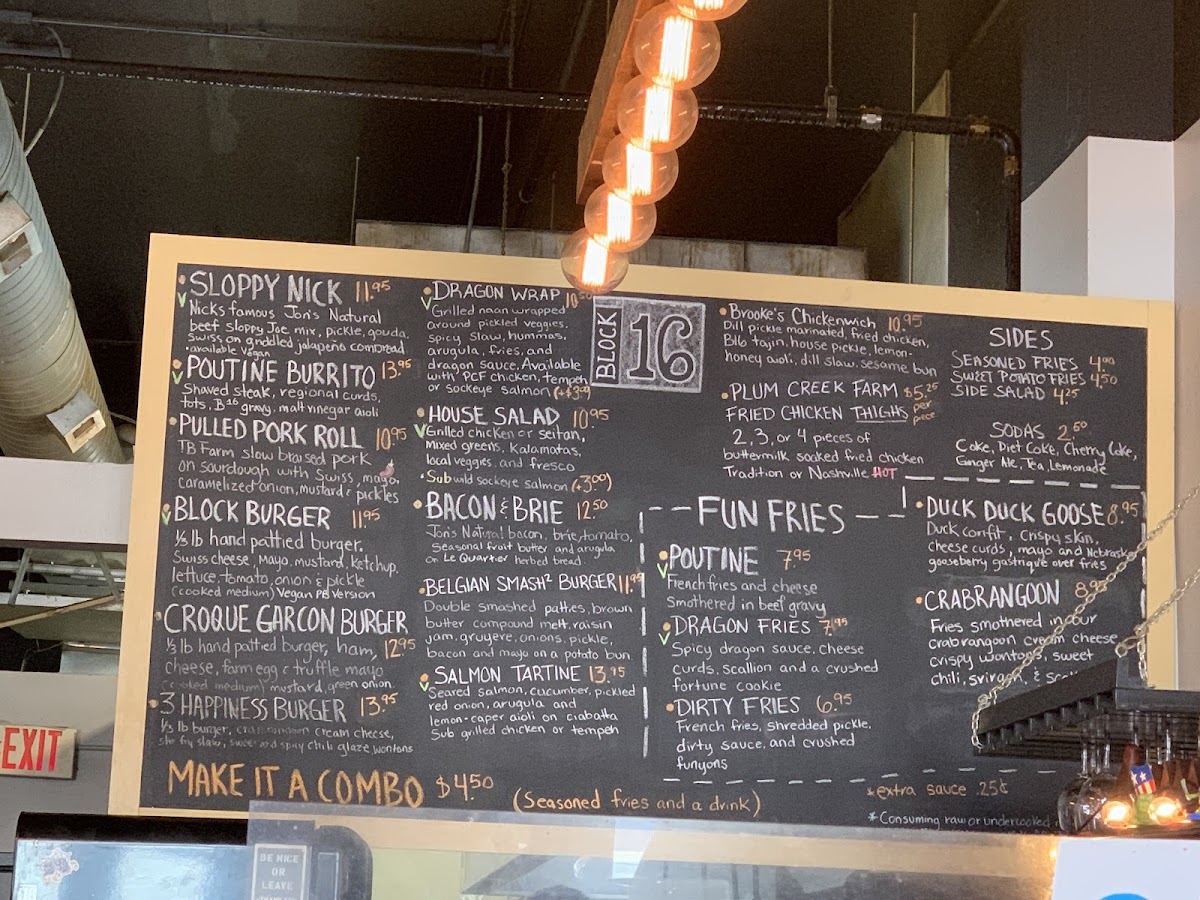 SLOPPY NICK 11.95
Nicks famous Jon's Natural
beef sloppy Joe mix, pickle, gouda,
Swiss on griddled jalapeño cornbread
•available vegan
POUTINE BURRITO 13.95
Shaved steak, regional curds,
tots, B16 gravy, malt vinegar aioli
PULLED PORK ROLL 10.95
TB Farm slow braised pork
on sourdough with Swiss, mayo,
caramelized onion, mustard & pickles
BLOCK BURGER 11.95
1/3 lb hand pattied burger.
Swiss cheese, Mayo, mustard, ketchup,
lettuce, tomato, onion & pickle
(cooked medium) Vegan PB version
CROQUE GARCON BURGER
1/3 lb hand pattied burger, ham, 12.95
cheese, farm egg & truffle mayo
(cooked medium) mustard, green onion
3 HAPPINESS BURGER 13.95
1/3 lb burger, crab rangoon cream cheese,
stir fry slaw, sweet and spicy chili glaze, wontons
DRAGON WRAP 10.50
Grilled naan wrapped
around pickled veggies,
spicy slaw, hummas,
arugula, fries, and
dragon sauce. Available
with PCF chicken, tempeh
or sockeye salmon (+$3.00)
HOUSE SALAD 10.95
Grilled chicken or seitan,
mixed greens, Kalamatas,
local veggies, and fresco
•Sub wild sockeye salmon (+3.00)
BACON & BRIE 12.50
Jon's Natural bacon, brie, tomato,
Seasonal fruit butter and arugula
on Le Quartier herbed bread
BELGIAN SMASH² BURGER 11.95
Double smashed patties, brown
butter compound melt, raisin
jam, gruyere, onions, pickle,
bacon and mayo on a potato bun
SALMON TARTINE 13.95
Seared salmon, cucumber, pickled
red onion, arugula and
lemon-caper aioli on ciabatta
Sub grilled chicken or tempeh
BLOCK 16
Brooke's Chickenwich 10.95
Dill pickle marinated, fried chicken,
B16 tajin, house pickle, lemon-
honey aioli, dill slaw, sesame bun
PLUM CREEK FARM $5.25
FRIED CHICKEN THIGHS per piece
2, 3, or 4 pieces of
buttermilk soaked fried chicken
Tradition or Nashville HOT
SIDES
SEASONED FRIES 4.00
SWEET POTATO FRIES 4.50
SIDE SALAD 4.25
SODAS 2.50
Coke, Diet Coke, Cherry Coke,
Ginger Ale, Tea, Lemonade
FUN FRIES
POUTINE 7.95
French fries and cheese
Smothered in beef gravy
DRAGON FRIES 7.95
Spicy dragon sauce, cheese
curds, scallion and a crushed
fortune cookie
DIRTY FRIES 6.95
French fries, shredded pickle,
dirty sauce, and crushed
funyons
DUCK DUCK GOOSE 8.95
Duck confit, crispy skin,
cheese curds, mayo and Nebraska
gooseberry gastrique over fries
CRABRANGOON 8.95
Fries smothered in our
crabrangoon cream cheese
crispy wontons, sweet
chili, sriracha, &
MAKE IT A COMBO $4.50 (Seasoned fries and a drink)
*extra sauce .25¢
*Consuming raw or undercooked
EXIT
BE NICE
OR
LEAVE